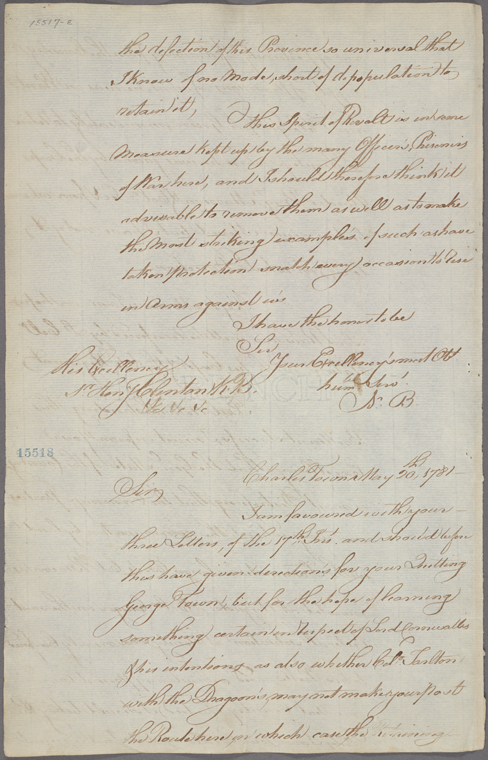 15517-2
the defection of this Province so universal that
I know of no Mode, short of depopulation to
retain it,
This Spirit of Revolt is in some
Measure kept up by the many Officers, Prisoners
of War here, and I should therefore think it
adviseable to remove them as well as to make
the Most striking examples of such as have
taken Protection, snatch every occasion to rise
in Arms against us
I have the honor to be
Sir
Your Excellency's most Obt
humble Servt
N. B
His Excellency
Sr Henry Clinton K.B.
&c &c &c
15518
Charles Town May 20th, 1781
Sir,
I am favoured with your
three Letters, of the 17th Inst. and should before
this have given directions for your Quitting
George Town, but for the hope of learning
something certain in respect of Lord Cornwallis
& his intentions, as also whether Col. Tarlton
with the Dragoons, may not make your post
the Route here in which case the